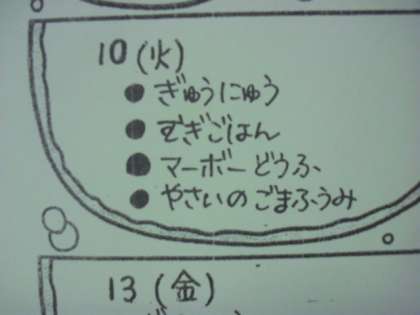 10 (火)
● ぎゅうにゅう
● むぎごはん
● マーボーどうふ
● やさいのごまふうみ
13 (金)